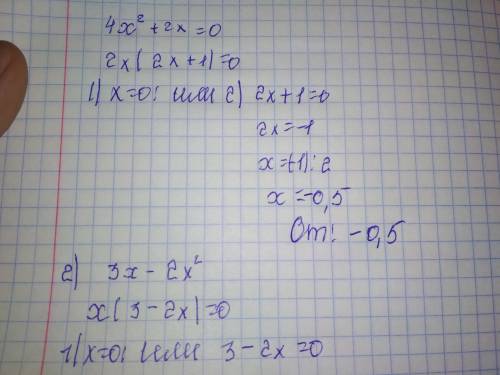 4x² + 2x = 0
2x( 2x+1)=0
1) x=0; или 2) 2x+1=0
2x=-1
x=(-1):2
x=-0,5
От: -0,5
2) 3x - 2x²
x( 3-2x)=0
1) x=0; или 3-2x=0